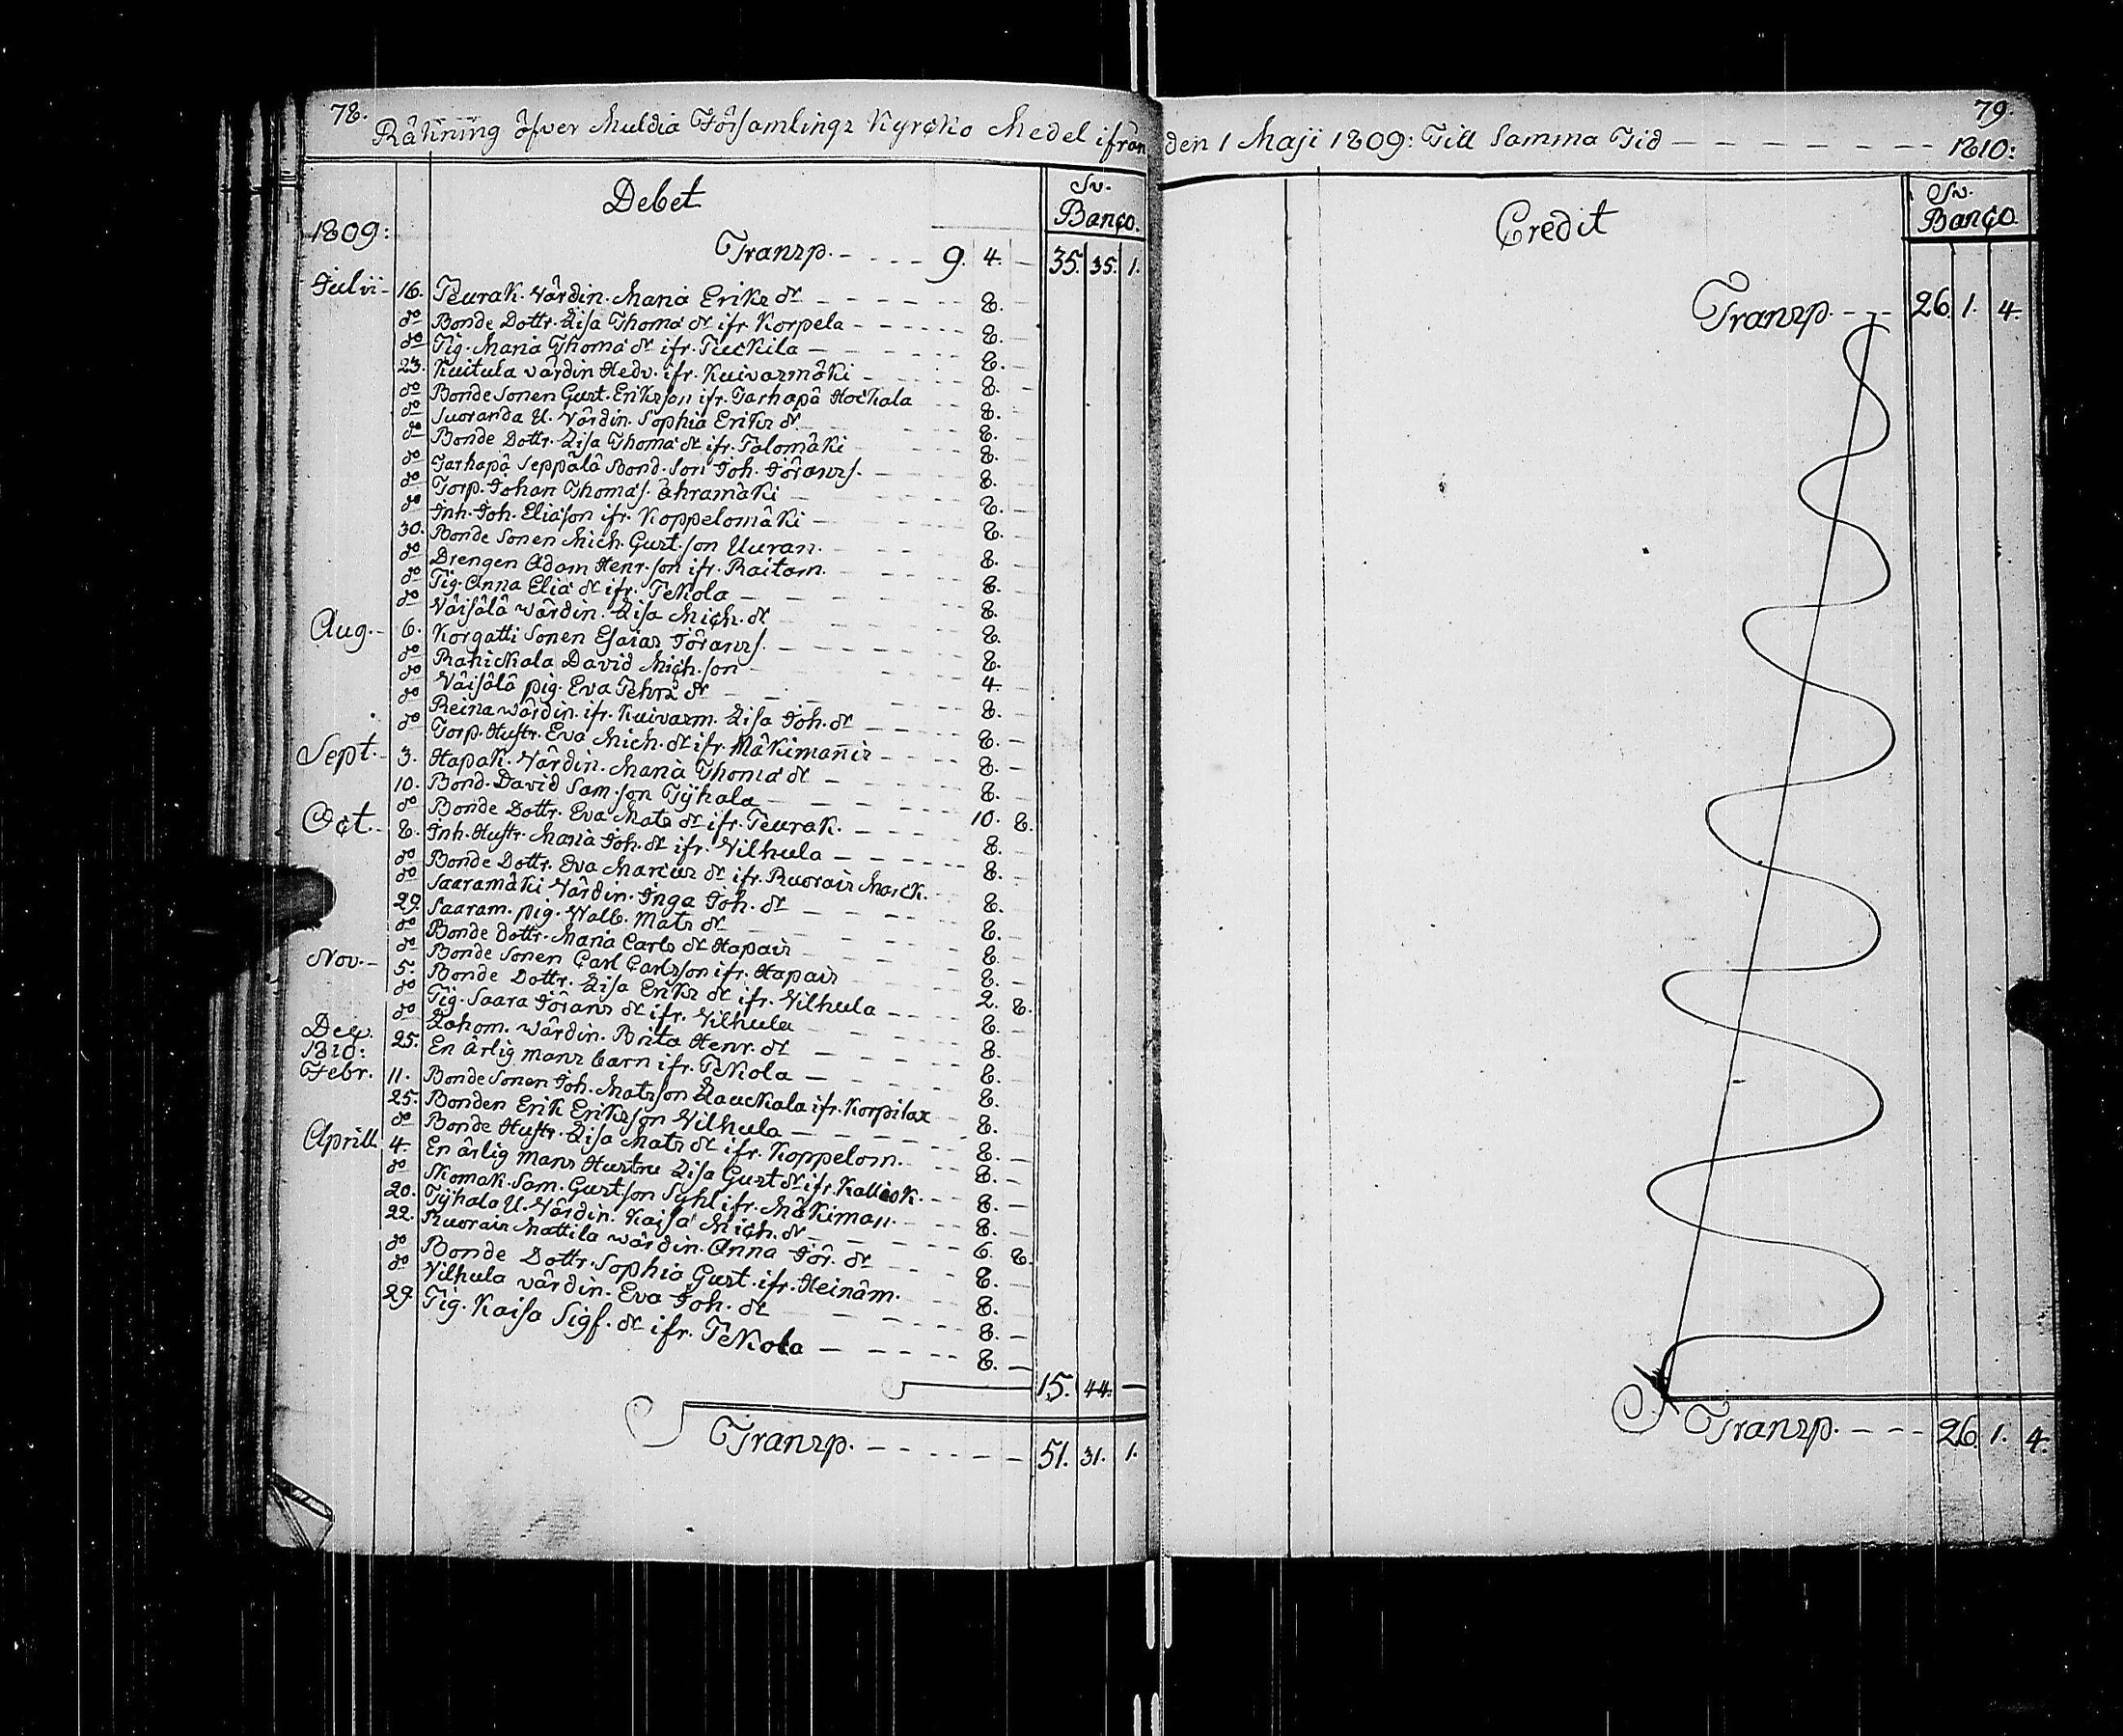 78.
Räkning öfver Muldia Församlings Kyrcko Medel ifrån
Debet
Sv.
Banco.
1809:
Transp. - - - - 9. 4. — 35. 35. 1.
Julii 16. Peurak. Värdin. Maria Eriks dr - - - - 8.
do Bonde Dottr. Lisa Thoma dr ifr Korpela - - - - 8. —
do Pig. Maria Thoma dr ifr. Puckila - - - - 8. —
23. Kuitula värdin Hedv. ifr. Kuivasmäki - - - 8. —
do Bonde Sonen Gust. Eriksson ifr. Tarhapä Hockala - - 8.
do Suoranda U. Värdin. Sophia Eriks dr - - 8.
do Bonde Dottr. Lisa Thoma dr ifr. Palomäki - - 8.
do Tarhapä Seppälä Bond. Son Joh. Jöranss. - - 8.
do Torp. Johan Thomas. Ahramäki - - - 8. —
do Inh. Joh. Eliasson ifr. Koppelomäki - - - 8.
30. Bonde Sonen Mich. Gust.son Uuran. - - - 8.
do Drengen Adam Henr.son ifr. Raitam. - - - 8.
do Pig. Anna Elia dr ifr. Pekola - - - 8.
do Väisälä wärdin. Lisa Mich. dr - - - 8.
Aug. 6. Korgatti Sonen Esaias Jöranss. - - - - 8.
do Rahickala David Mich.son - - - 4.
do Väisälä pig. Eva Pehrs dr - - - 8.
do Reina wärdin. ifr. Kuivasm. Lisa Joh. dr - - - 8. —
do Torp. Hustr. Eva Mich. dr ifr. Mäkimañis - - - 8. —
Sept. 3. Hapak. Värdin. Maria Thoma dr - - - 8.
10. Bond. David Sam.son Pyhala - - - 10. 8.
do Bonde Dottr. Eva Mats dr ifr. Peurak. - - - 8.
Oct. 8. Inh. Hustr. Maria Joh. dr ifr. Vilhula - - - 8. —
do Bonde Dottr. Eva Marcus dr ifr. Ruorais Marck. - 8.
do Saaramäki Värdin. Inga Joh. dr - - - 8.
29. Saaram. pig. Walb. Mats dr - - - 8.
do Bonde dottr. Maria Carls dr Hapais - - - 8. —
do Bonde Sonen Carl Carlsson ifr. Hapais - - 2. 8.
Nov. 5. Bonde Dottr. Lisa Eriks dr ifr. Vilhula - - - 8. —
do Pig. Saara Jörans dr ifr. Vilhula - - - 8.
do Lahom. wärdin. Brita Henr. dr - - - 8.
Dec. 25. En ärlig mans barn ifr. Pekola - - - 8.
1810:
Febr. 11. Bonde Sonen Joh. Matsson Lauckala ifr. Korpilax - 8.
25. Bonden Erik Eriksson Vilhula - - - 8. —
do Bonde Hustr. Lisa Mats dr ifr. Koppelom. - - 8. —
Aprill 4. En ärlig mans Hustru Lisa Gust dr ifr. Kalliok. - 8. —
do Skomak. Sam. Gustson Syhl ifr. Mäkiman. - - 8. —
20. Pyhala U. Värdin. Kaisa Mich. dr - - - 6. 8.
22. Ruorais Mattila wärdin. Anna Jör. dr - - - 8. —
do Bonde Dottr. Sophia Gust. ifr. Heinäm. - - 8.
do Vilhula värdin. Eva Joh. dr - - - 8. —
29. Pig. Kaisa Sigf. dr ifr. Pekola - - - - 8. —
15. 44. —
Transp. - - - - - 51. 31. 1.
79.
den 1 Maji 1809: Till Samma Tid - - - - - - - 1810:
Credit
Sv.
Banco.
Transp. - - - 26. 1. 4.
Transp. - - - 26. 1. 4.